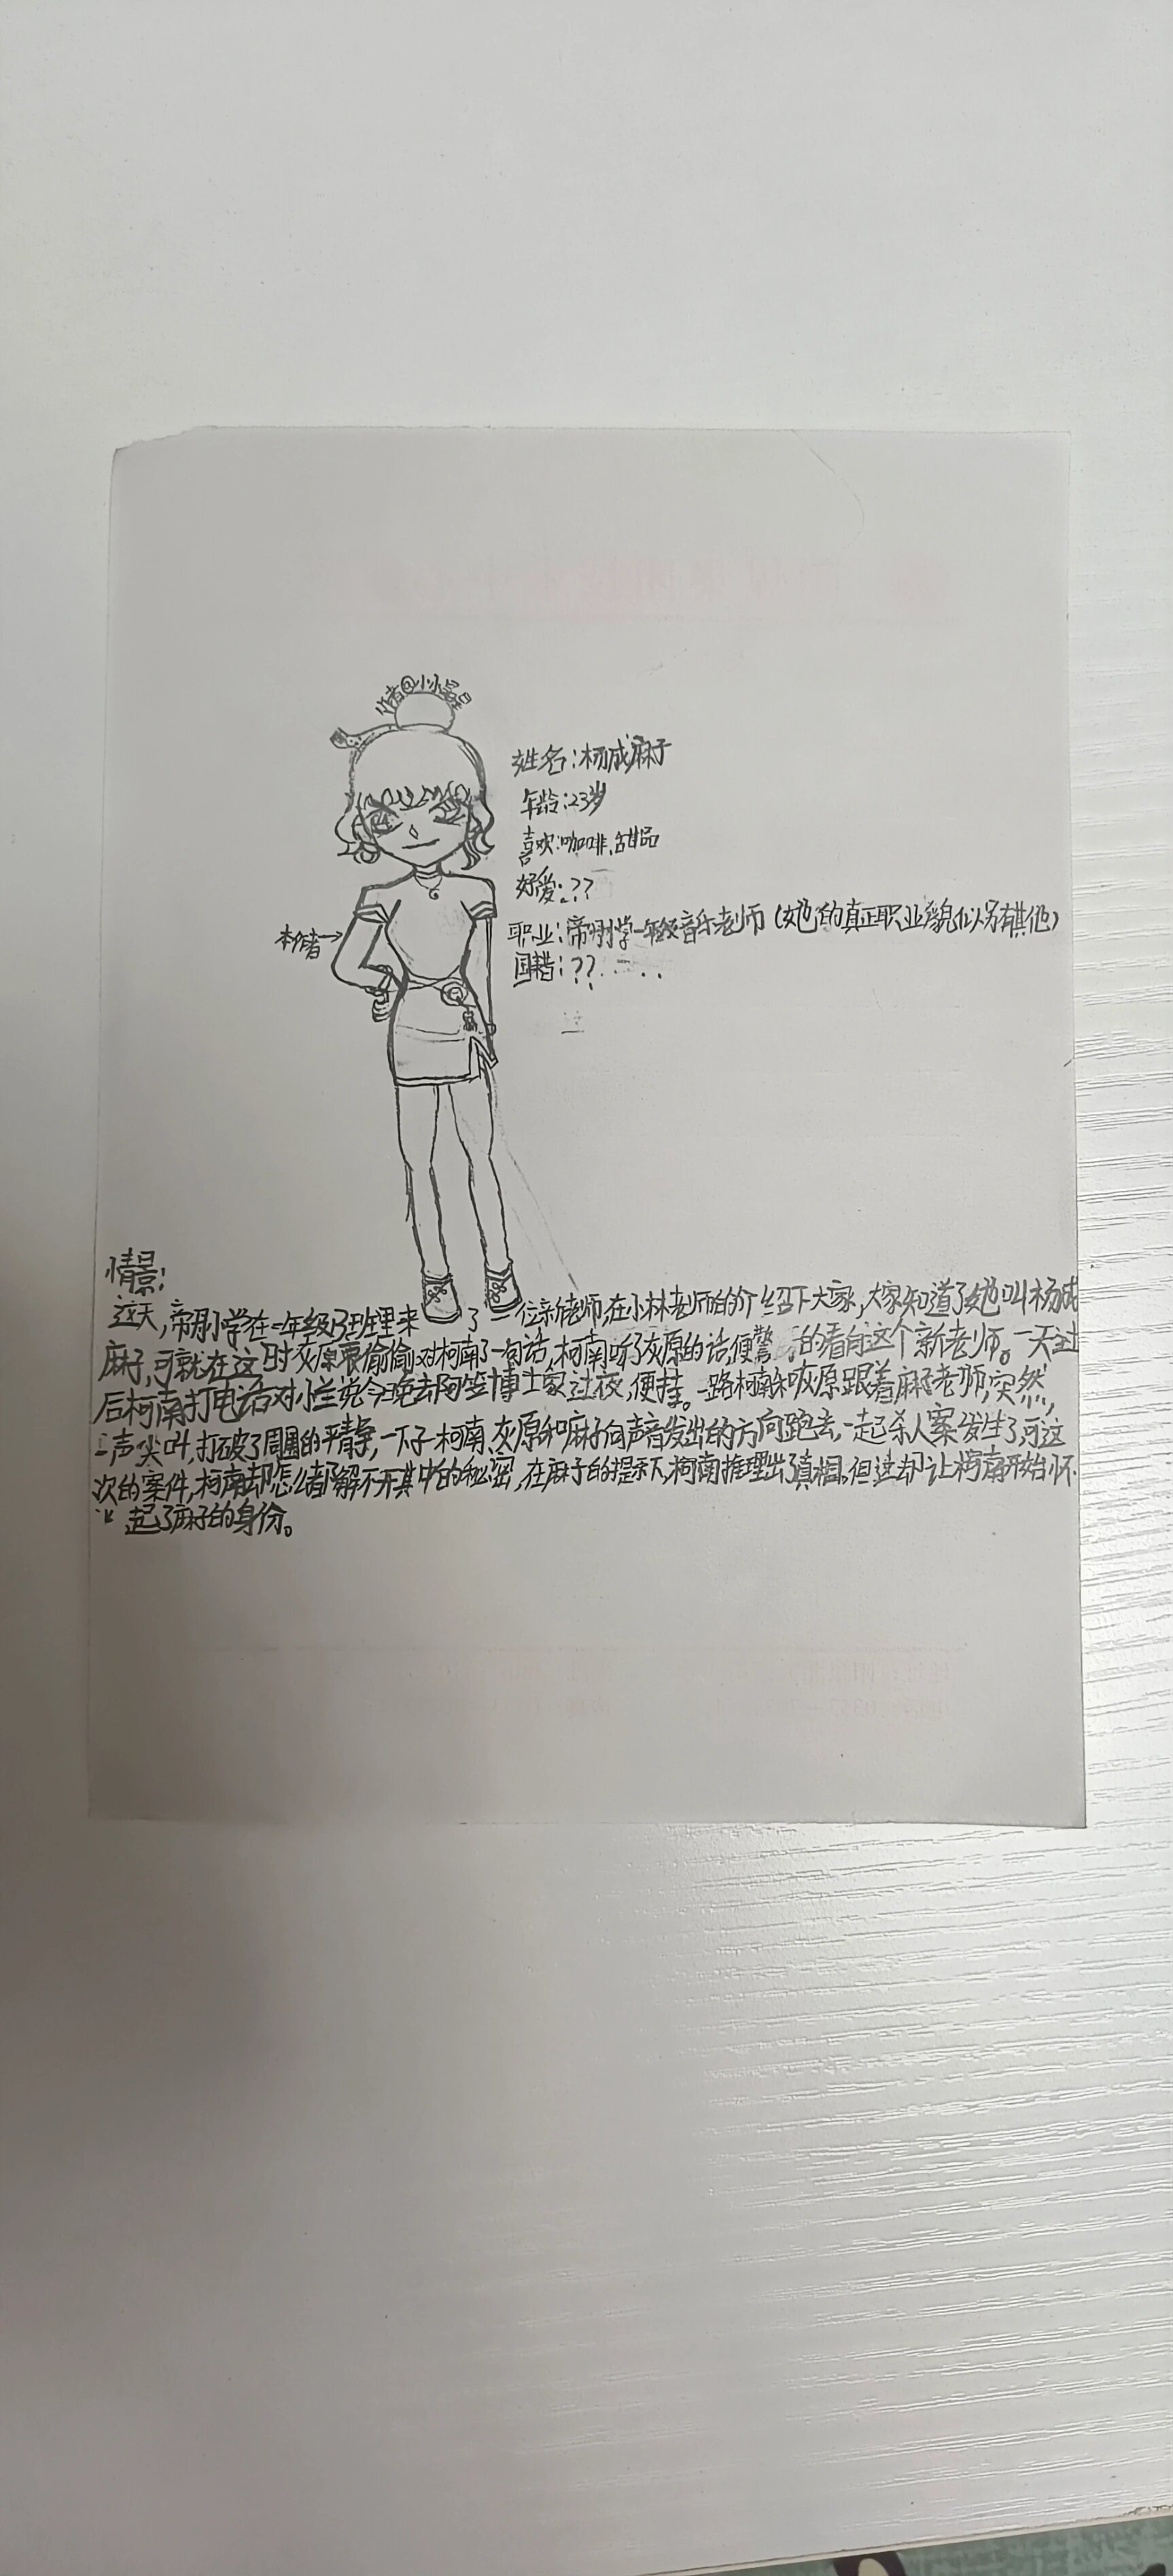 作者@小小
姓名:杨成麻子
年龄:23岁
喜欢:咖啡、甜品
好爱:??
本作者→
职业:帝丹小学一年级音乐老师(她的真正职业貌似另有其他)
国籍:??
情景:
这天,帝丹小学在一年级B班里来了一位新老师,在小林老师的介绍下大家,大家知道了她叫杨成
麻子,可就在这时灰原哀偷偷对柯南了一句话,柯南听了灰原的话,便警的看向这个新老师。一天过
后柯南打电话对小兰说今晚去阿笠博士家过夜,便挂。一路柯南和灰原跟着麻子老师,突然,
一声尖叫,打破了周围的平静,一下子柯南、灰原和麻子向声音发出的方向跑去,一起杀人案发生了,可这
次的案件,柯南却怎么都了解不开其中的秘密,在麻子的提示下,柯南推理出了真相。但这却让柯南开始怀
起了麻子的身份。